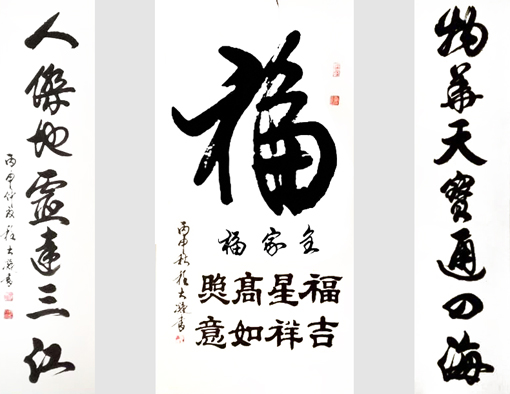 物華天寶通四海
福
全家福
福星高照
吉祥如意
丙申秋
人傑地靈達三江
丙申